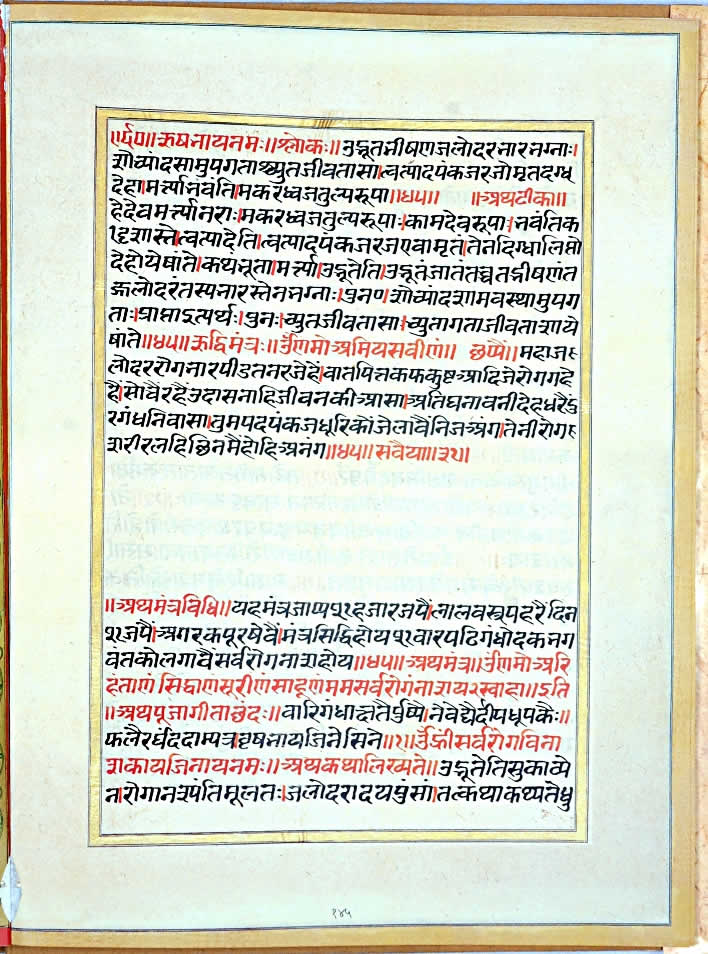 ॥ऋषनायनमः॥श्लोकः॥उद्भूतभीषणजलोदरभारभुग्नाः।
शोच्यांदसामुपगताश्च्युतजीवतासा।त्वत्पादपंकजरजोमृतदग्ध
देहा।मर्त्याभवंति।मकरध्वजतुल्यरूपा॥४५॥ ॥अथटीका॥
हेदेवमर्त्यानराः।मकरध्वजतुल्यरूपाः।कामदेवरूपा।भवंतिक
त्वत्पादेति।त्वत्पादपंकजरजएवामृतं।तेनदिग्धालिप्तो
देहोयेषांते।कथंभूता।मर्त्या।उद्भूतेति।उद्भूतंजातंतच्चतद्भीषणंत
ज्जलोदरंतस्यभारस्तेनभग्नाः।पुनः।शोच्यांदशामवस्थामुपग
ताः।प्राप्ताइत्यर्थः।पुनः।च्युतजीवतासा।च्युतागताजीवताशाये
षांते॥४५॥ऋद्धिमंत्रः॥उँणमोअमियसवीणं॥ छप्पै॥महाज
लोदररोगभारपीडतनरजेहैं।वातपित्तकफकुष्टआदिजेरोगगहे
है।सोचैरहैंउदासनाहिजीवनकीआसा।अतिघनावनीदेहधरैदु
रगंधनिवासा।तुमपदपंकजधूरिकोंजेलावैनिजअंग।तेनीरोगश
शरीरलहिछिनमैंहोहिअनंग॥४५॥सवैया॥३१।
॥अथमंत्रविधि॥यहमंत्रजाप्य१२हजारजपैं।लालवस्त्रपहरैदिन
१२जपैं।अगरकपूरषेवैं।मंत्रसिद्धिहोय१२वारपढिगंधोदकभग
वंतकोलगावैंसर्वरोगनाशहोय॥४५॥अथमंत्र॥उँणमोअरि
हंताणंसिद्धाणंसूरीणंसाहूणंममसर्वरोगंनाशय२स्वाहा॥इति
॥अथपूजागीताछंदः॥वारिगंधाक्षतैर्पुष्पै।नेवेद्यैर्दीपधूपकैः॥
फलैरर्घंददाम्यत्रवृषभायजिनेसिने॥१॥उँह्रींसर्वरोगविना
शकायजिनायनमः॥अथकथालिख्यते॥उद्भूतेतिसुकाव्ये
न।रोगानश्यंतिमूलतः।जलोदरादयपुंसां।तत्कथाकथ्यतेधु
१४५